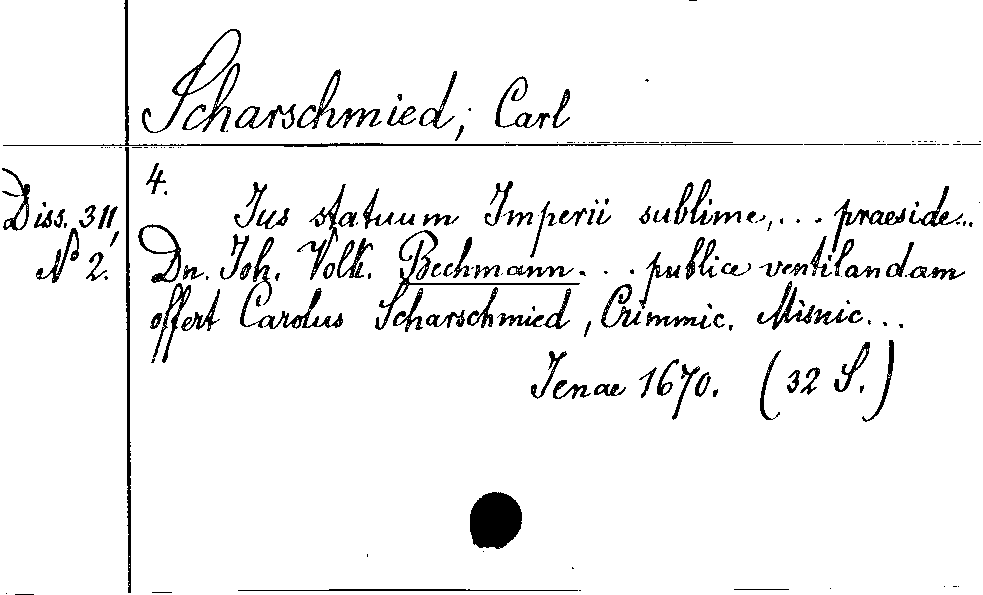 Scharschmied, Carl
4.
Diss. 311,
No 2.
Ius statuum Imperii sublime,... praeside...
Dn. Joh. Volk. Bechmann... publice ventilandam
offert Carolus Scharschmied, Crimmic. Misnic...
Jenae 1670. (32 S.)